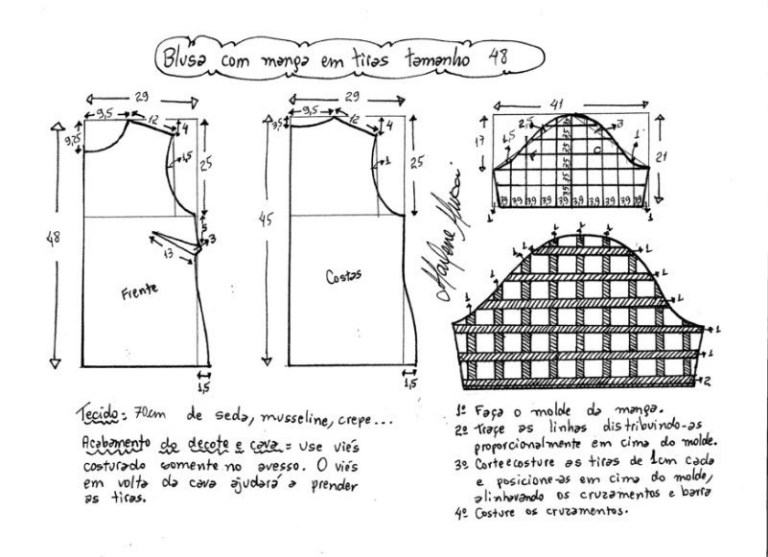 Blusa com manga em tiras tamanho 48
29
9,5
12
4
9,25
1,5
25
48
5
3
13
Frente
1,5
29
9,5
12
4
3,5
1
25
45
Costas
1,5
41
17
2,5
3
1,5
1
21
3,5
3,5
3,5
3,5
3,9 3,9 3,9 3,9 3,9 3,9 3,9
1
1
1
1
1
1
1
1
1
1
1
1
1
2
Tecido = 70cm de seda, musseline, crepe...
Acabamento do decote e cava = use viés
costurado somente no avesso. O viés
em volta da cava ajudará a prender
as tiras.
1º Faça o molde da manga.
2º Trace as linhas distribuindo-as
proporcionalmente em cima do molde.
3º Corte e costure as tiras de 1cm cada
e posicione-as em cima do molde,
alinhavando os cruzamentos e barra
4º Costure os cruzamentos.